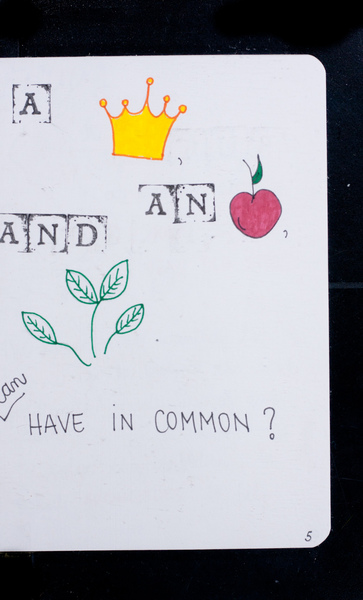 A
,
AN
,
AND
can
HAVE IN COMMON?
5